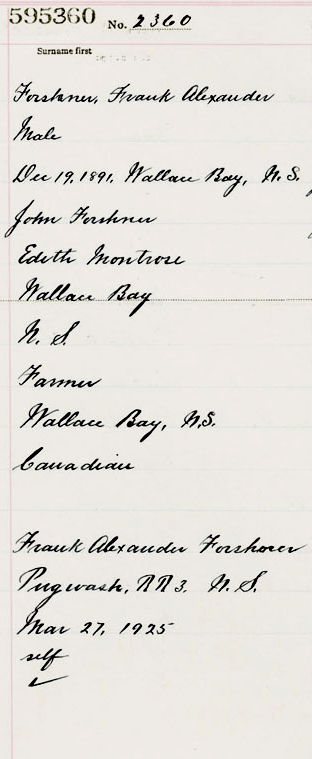 595360 No. 2360
Surname first
Forshner, Frank Alexander
Male
Dec 19, 1891, Wallace Bay, N.S.
John Forshner
Edith Montrose
Wallace Bay
N. S.
Farmer
Wallace Bay, N.S.
Canadian
Frank Alexander Forshner
Pugwash, RR3, N. S.
Mar 27, 1925
self
✓